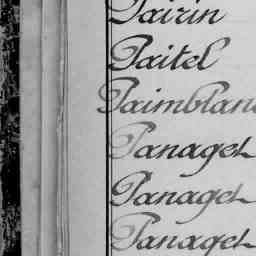 Pairin
Paitel
Paimblanc
Panaget
Panaget
Panaget